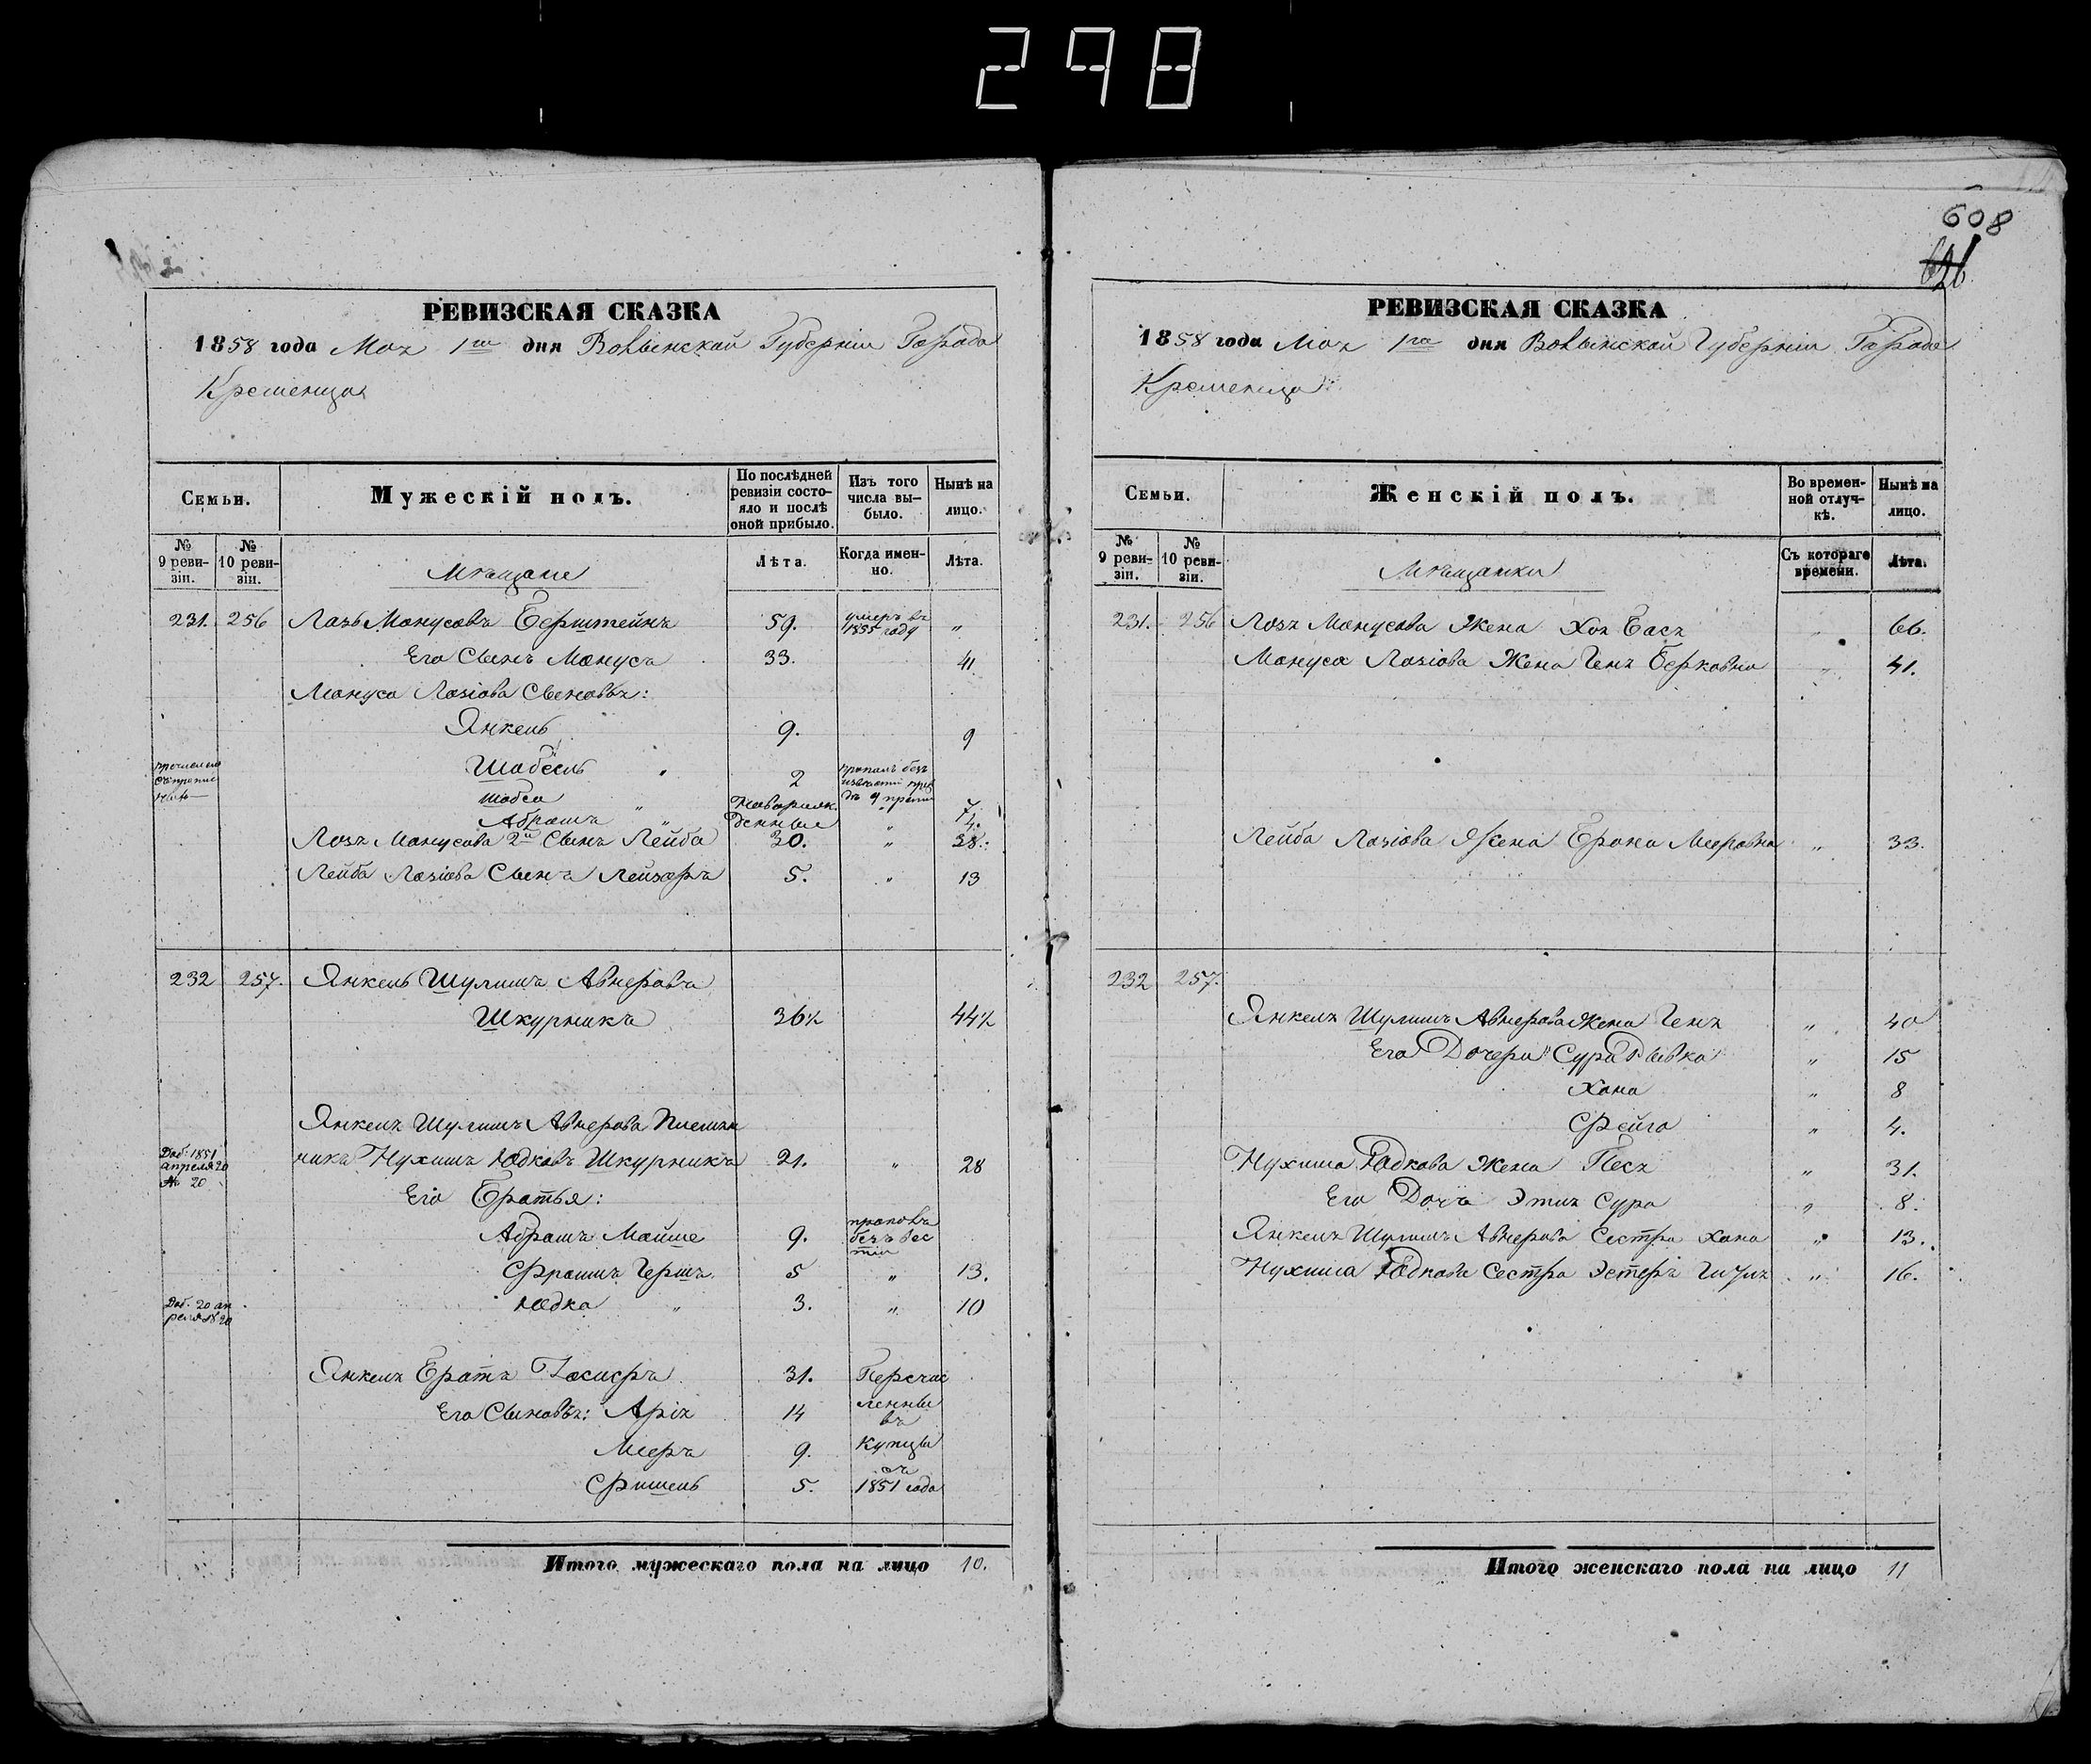 298
РЕВИЗСКАЯ СКАЗКА
1858 года Мая 1го дня Волынской Губерніи Города
Кременца
Семьи.
Мужескій полъ.
По послѣдней ревизіи состояло и послѣ оной прибыло.
Изъ того числа выбыло.
Нынѣ на лицо.
№ 9 ревизіи.
№ 10 ревизіи.
Мѣщане
Лѣта.
Когда именно.
Лѣта.
231. 256 Лазь Манусовъ Берштейнъ 59. умеръ въ 1855 году "
Его Сынъ Манусъ 33. 41
Мануса Лазіова Сыновья:
Янкель 9. 9
Шабсель " 2 пропалъ безъ
Шабса " Новорож 7
Абрамъ " денные " 4.
Лозя Манусова 2й Сынъ Лейба 30. " 38.
Лейба Лазіова Сынъ Лейзоръ 5. " 13
232 257. Янкель Шулимъ Авнеровъ
Шкурникъ 36½ 44½
Янкеля Шулимъ Авнерова Племян
Доб. 1851 апреля 20 № 20
никъ Нухимъ Юдковъ Шкурникъ 21. " 28
Его Братья:
Абрамъ Мойше 9. пропавъ безъ вестіи
Фроимъ Гершъ 5 " 13.
Доб. 20 апреля № 20
Юдка " 3. " 10
Янкеля Братъ Іосиеръ 31. Перечис
Его Сыновья: Арія 14 ленны въ
Мееръ 9. Купцы
Фишель 5. съ 1851 года
Итого мужескаго пола на лицо 10.
608
626
РЕВИЗСКАЯ СКАЗКА
1858 года Мая 1го дня Волынской Губерніи Города
Кременца
Семьи.
Женскій полъ.
Во временной отлучкѣ.
Нынѣ на лицо.
№ 9 ревизіи.
№ 10 ревизіи.
Мѣщанки
Съ котораго времени.
Лѣта.
231. 256 Лозя Манусова Жена Хая Бася " 66.
Мануса Лазіова Жена Геня Берковна " 41.
Лейба Лазіова Жена Брона Меировна " 33.
232 257.
Янкеля Шулимъ Авнерова Жена Геня " 40
Его Дочери Сура Рывка " 15
Хана " 8
Фейга " 4.
Нухима Юдкова Жена Песя " 31.
Его Дочь Этия Сура " 8.
Янкеля Шулимъ Авнерова Сестра Хана " 13.
Нухима Юдкова Сестра Эстеръ Гитля " 16.
Итого женскаго пола на лицо 11